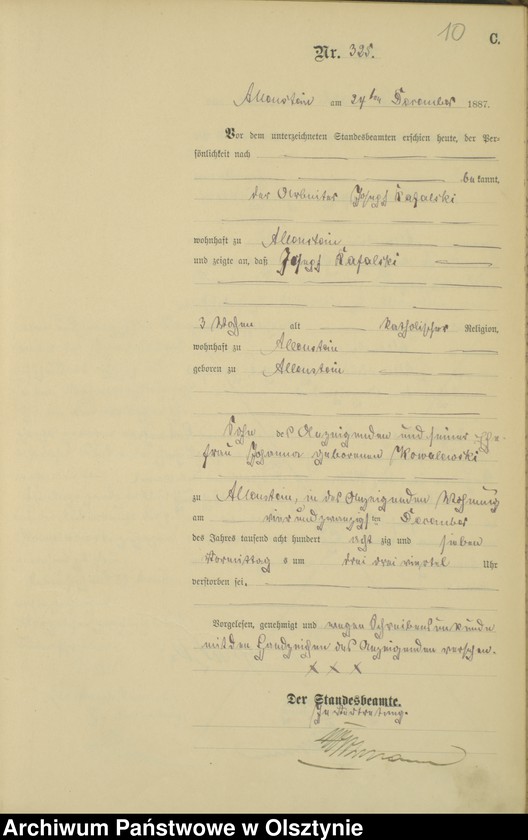 10
C.
Nr. 325.
Allenstein am 24ten December 1887.
Vor dem unterzeichneten Standesbeamten erschien heute, der Per-
sönlichkeit nach
bekannt,
der Arbeiter Joseph Kafalski
wohnhaft zu Allenstein
und zeigte an, daß Joseph Kafalski
3 Wochen alt katholischer Religion,
wohnhaft zu Allenstein
geboren zu Allenstein
Sohn des Anzeigenden und seiner Ehe-
frau Johanna geborenen Kowalewski
zu Allenstein, in des Anzeigenden Wohnung
am vierundzwanzigsten December
des Jahres tausend acht hundert achtzig und sieben
Vormittags um drei drei viertel Uhr
verstorben sei.
Vorgelesen, genehmigt und wegen Schreibensunkunde
mit den Handzeichen des Anzeigenden versehen.
X X X
Der Standesbeamte.
In Vertretung.
Archiwum Państwowe w Olsztynie